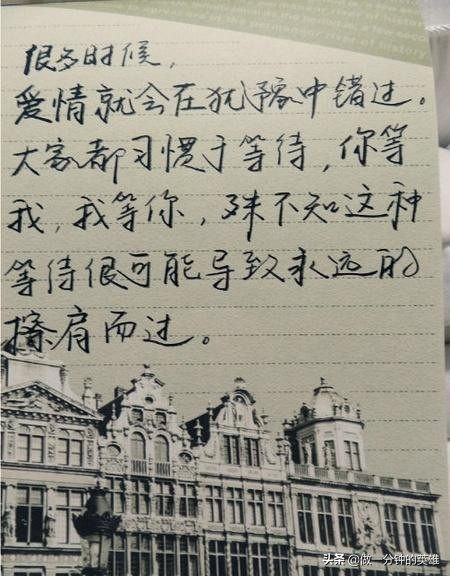 很多时候，
爱情就会在犹豫中错过。
大家都习惯于等待，你等
我，我等你，殊不知这种
等待很可能导致永远的
擦肩而过。
头条 @做一分钟的英雄